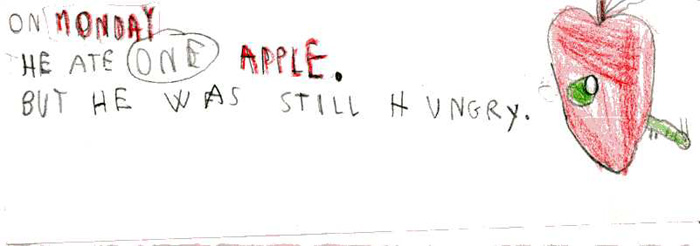 ON MONDAY
HE ATE ONE APPLE.
BUT HE WAS STILL HUNGRY.